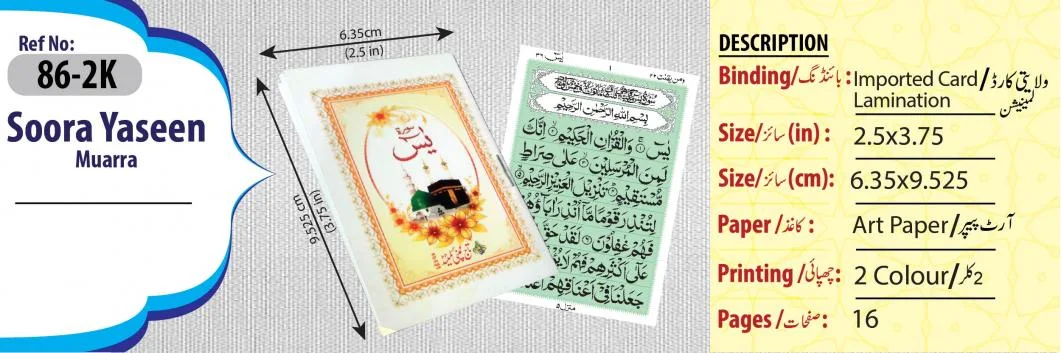 Ref No:
86-2K
Soora Yaseen
Muarra
6.35cm
(2.5 in)
9.525 cm
(3.75 in)
سورة
يٰسٓ
ومن يقنت ٢٢
١
يٰسٓ ٣٦
بِسْمِ اللهِ الرَّحْمٰنِ الرَّحِيْمِ
يٰسٓ ۚ وَالْقُرْاٰنِ الْحَكِيْمِ ۙ اِنَّكَ
لَمِنَ الْمُرْسَلِيْنَ ۙ عَلٰى صِرَاطٍ
مُّسْتَقِيْمٍ ؕ تَنْزِيْلَ الْعَزِيْزِ الرَّحِيْمِ ۙ
لِتُنْذِرَ قَوْمًا مَّآ اُنْذِرَ اٰبَآؤُهُمْ
فَهُمْ غٰفِلُوْنَ لَقَدْ حَقَّ
عَلٰٓى اَكْثَرِهِمْ فَهُمْ لَا
جَعَلْنَا فِيْٓ اَعْنَاقِهِمْ
منزل ٥
DESCRIPTION
Binding/بائنڈنگ: Imported Card/ولایتی کارڈ
Lamination لیمینیشن
Size/سائز (in): 2.5x3.75
Size/سائز (cm): 6.35x9.525
Paper/کاغذ: Art Paper/آرٹ پیپر
Printing/چھپائی: 2 Colour/2کلر
Pages/صفحات: 16